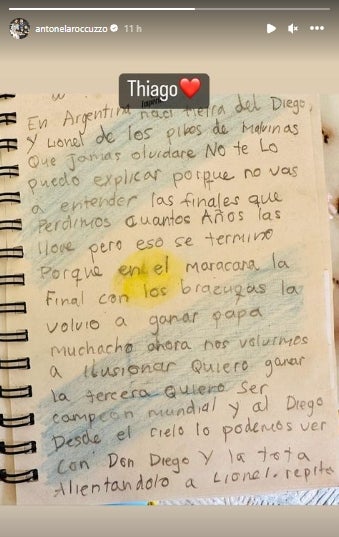 antonelaroccuzzo 11 h
Thiago❤️
En Argentina nací tierra del Diego,
Y Lionel de los pibes de malvinas
Que Jamas olvidare No te Lo
puedo explicar porque no vas
a entender las finales que
Perdimos cuantos Años las
llore pero eso se termino
Porque en el maracana la
final con los brazugas la
volvio a ganar papa
muchacho ahora nos volvimos
a ilusionar Quiero ganar
la tercera Quiero Ser
campeon mundial y al Diego
Desde el cielo lo podemos ver
Con Don Diego Y la tota
Alientandolo a Lionel. repita